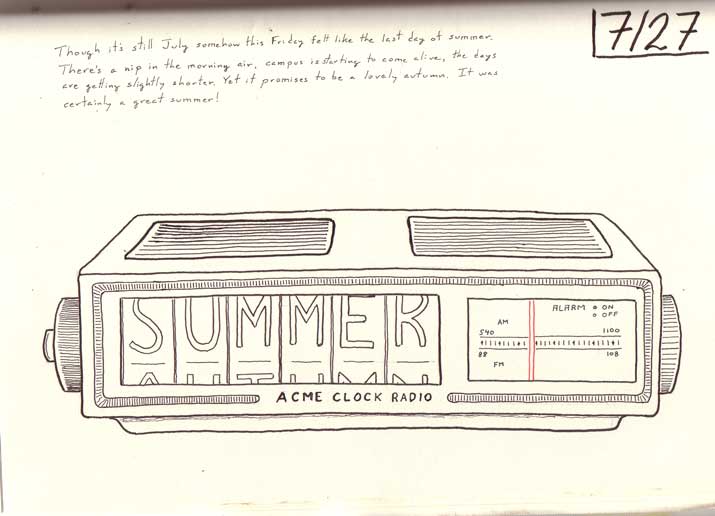 7/27
Though it's still July somehow this Friday felt like the last day of summer.
There's a nip in the morning air, campus is starting to come alive, the days
are getting slightly shorter. Yet it promises to be a lovely autumn. It was
certainly a great summer!
SUMMER
AUTUMN
ALARM ON
OFF
AM
540 1100
88 108
FM
ACME CLOCK RADIO